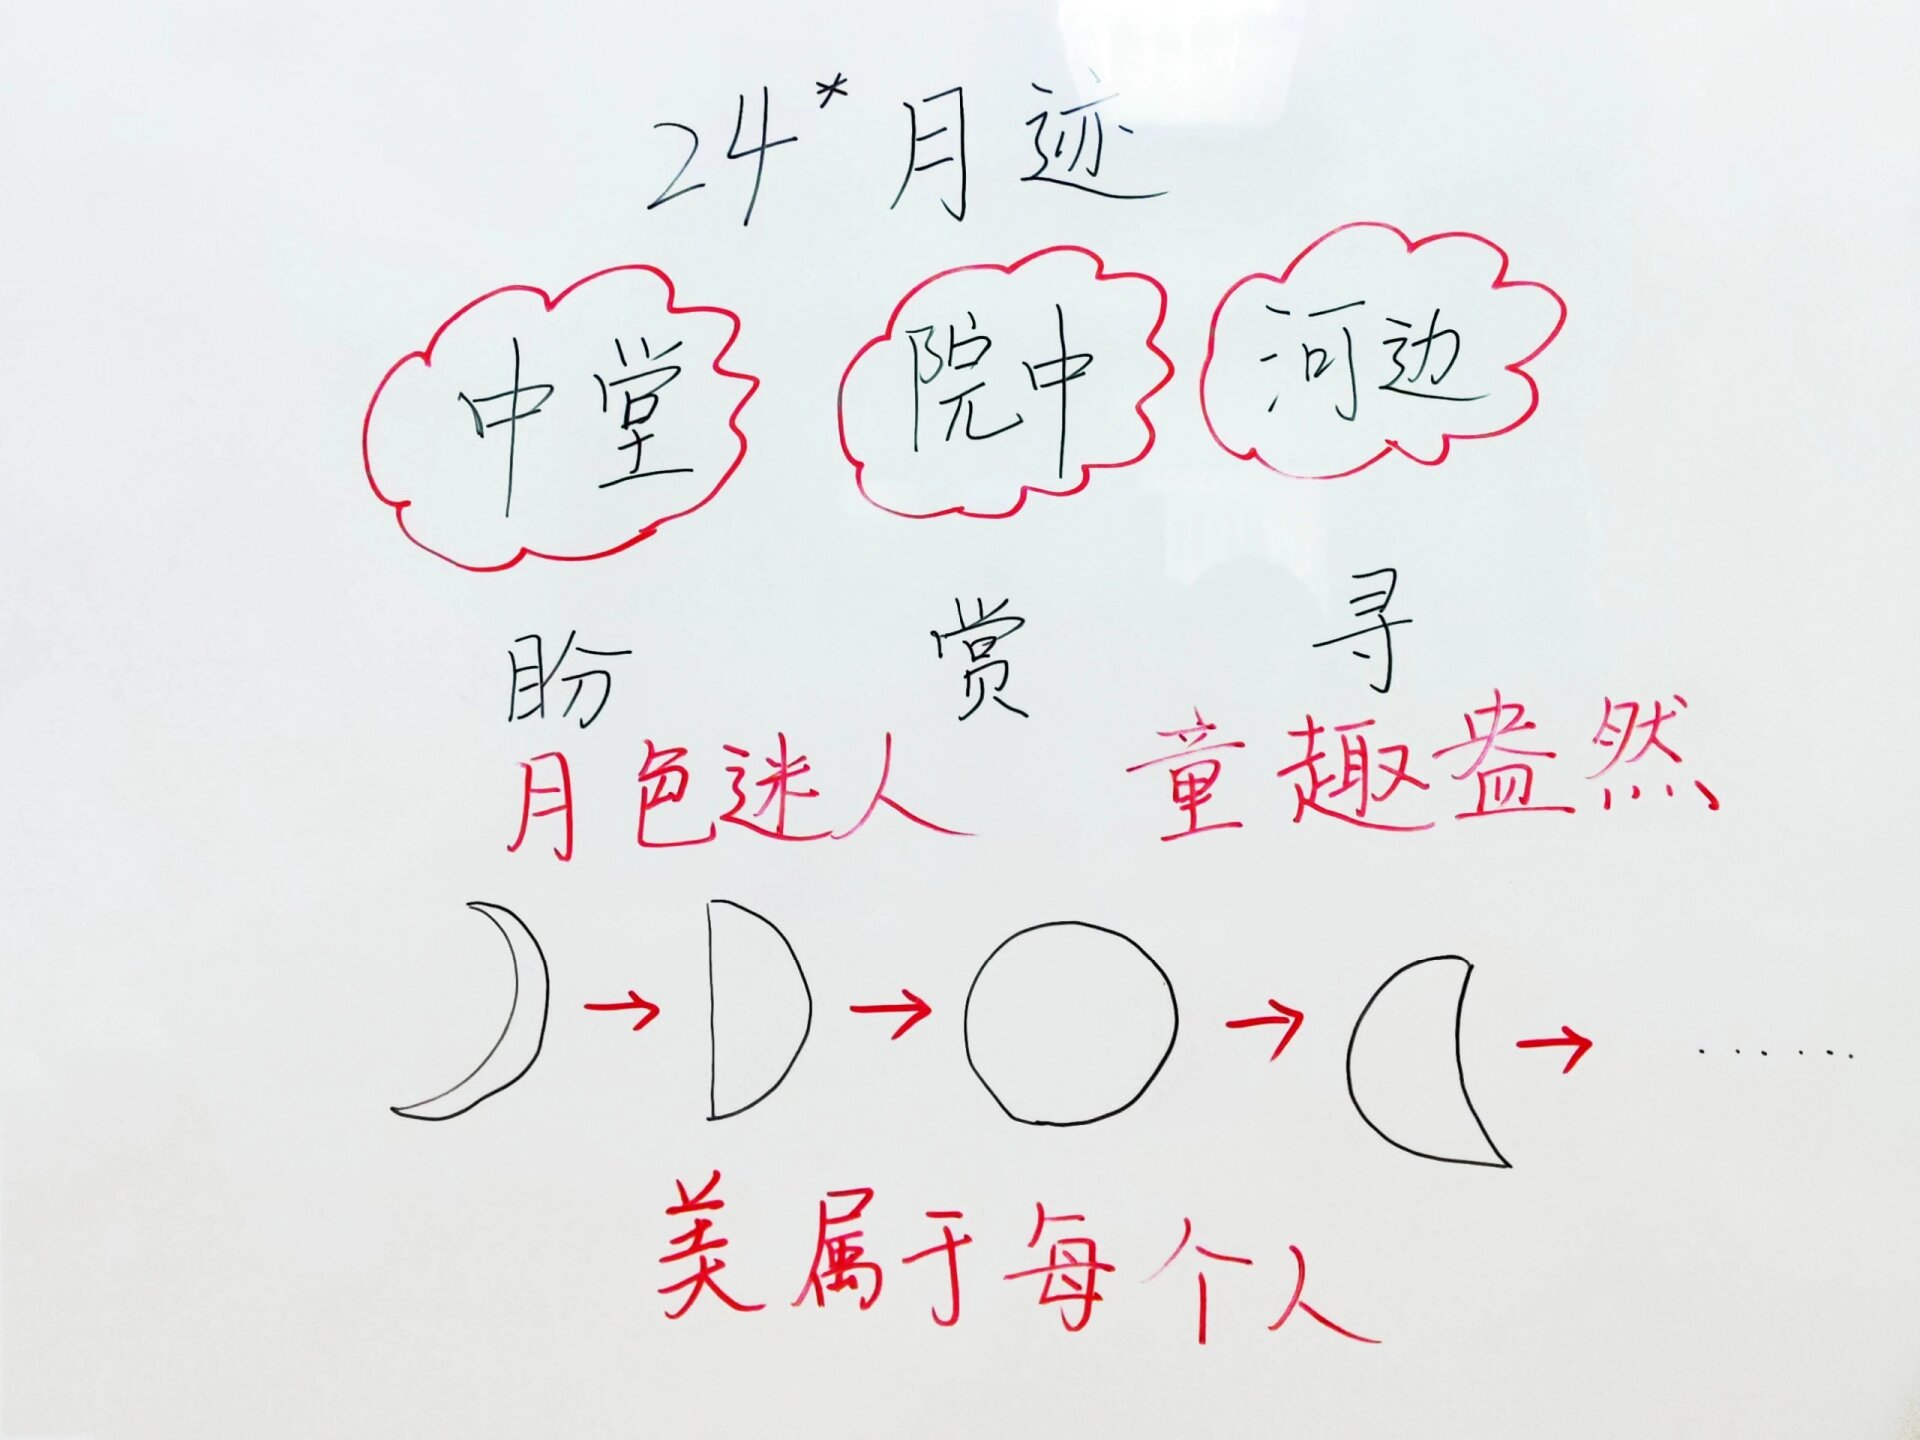 24*月迹
中堂 院中 河边
盼 赏 寻
月色迷人 童趣盎然
……
美属于每个人